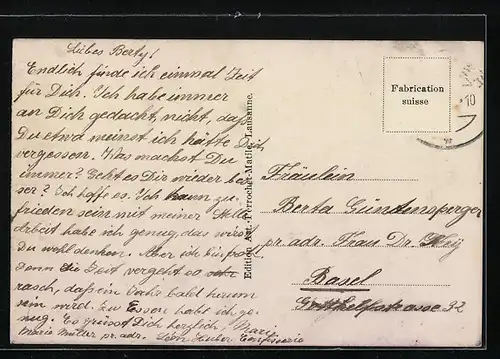 Liebes Berty!
Endlich finde ich einmal Zeit
für Dich. Ich habe immer
an Dich gedacht, nicht, daß
Du etwa meinst ich hätte Dich
vergessen. Was machst Du
immer? Geht es Dir wieder bes
ser? Ich hoffe es. Ich kann zu
frieden sein mit meiner Stelle
Arbeit habe ich genug, das wirst
Du wohl denken. Aber ich bin froh
denn die Zeit vergeht so
rasch, daß ein Jahr bald herum
sein wird. Zu Essen habe ich ge
nug. Es grüsst Dich herzlich, Marie
Marie Müller pr. adr. Confiserie
Edition Art. Perrochet-Matile, Lausanne.
Fabrication
suisse
10
Fräulein
Berta Gündensperger
pr. adr. Frau Dr.
Basel
Gotthelfstrasse 92